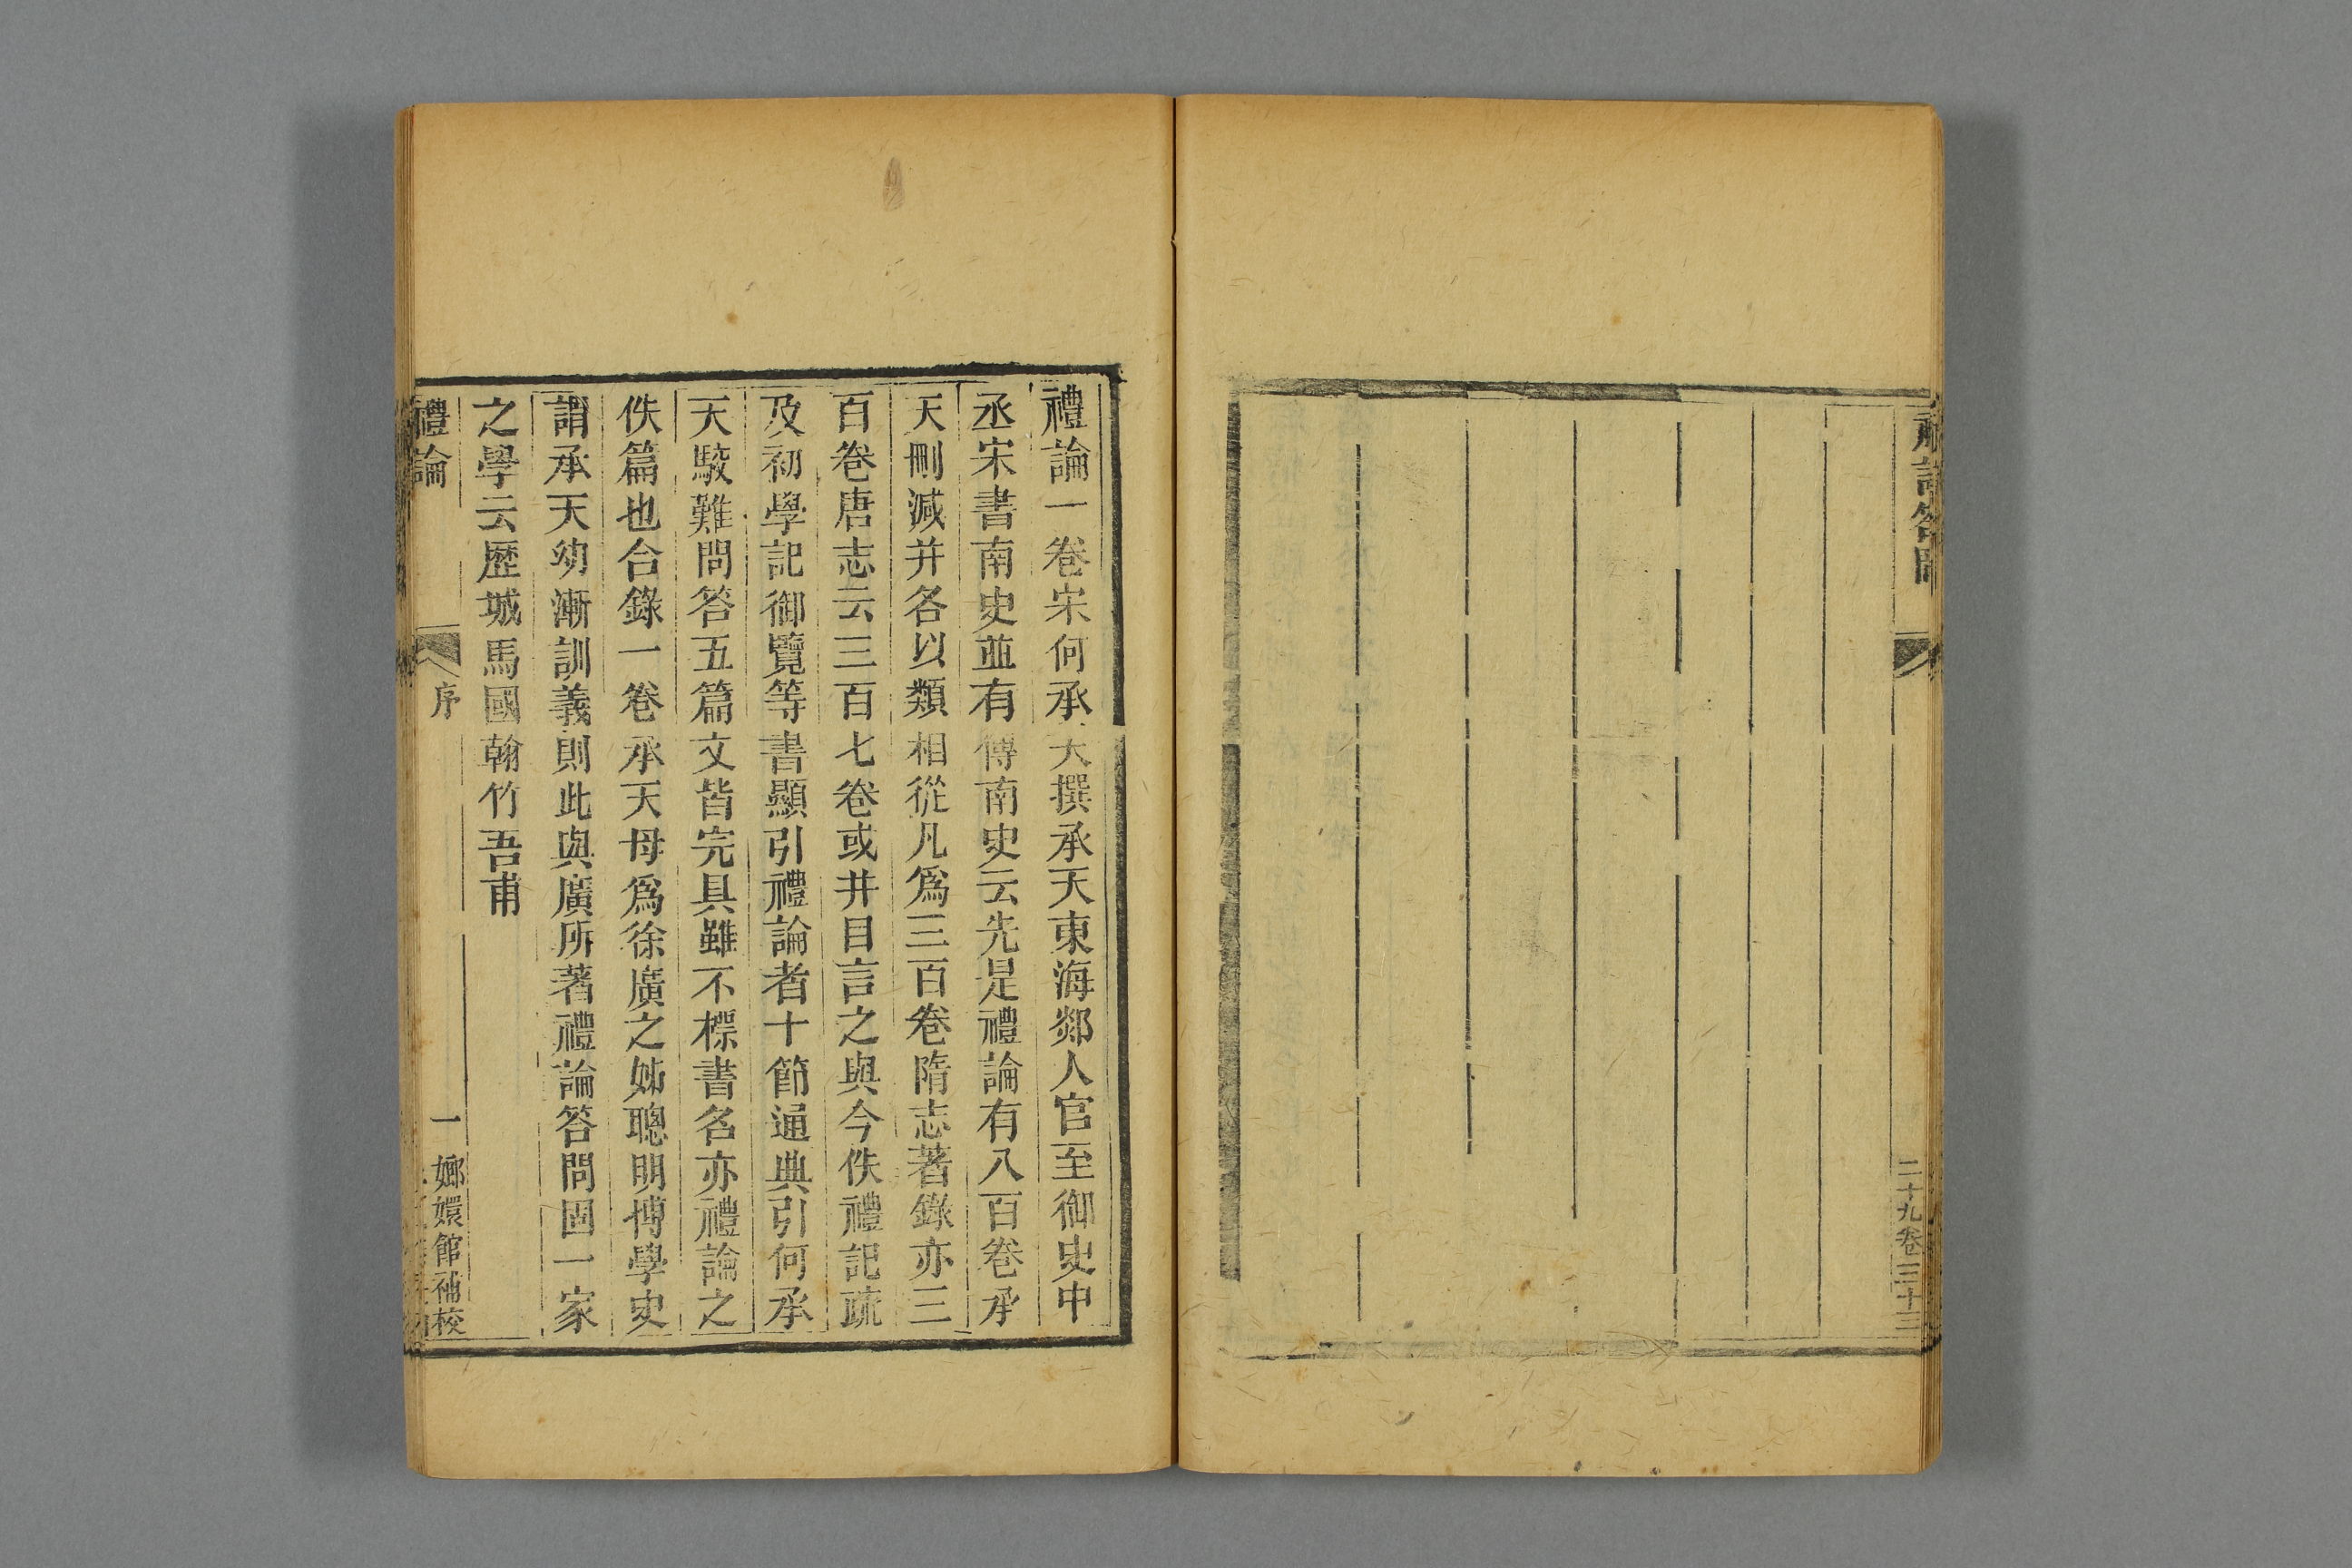 二十九卷三十三
禮論一卷宋何承天撰承天東海郯人官至御史中
丞宋書南史並有傳南史云先是禮論有八百卷承
天刪減并各以類相從凡爲三百卷隋志著錄亦三
百卷唐志云三百七卷或并目言之與今佚禮記疏
及初學記御覽等書顯引禮論者十節通典引何承
天駮難問答五篇文皆完具雖不標書名亦禮論之
佚篇也合錄一卷承天母爲徐廣之姊聰明博學史
謂承天幼漸訓義則此與廣所著禮論答問固一家
之學云歷城馬國翰竹吾甫
禮論
序
一
嫏嬛館補校